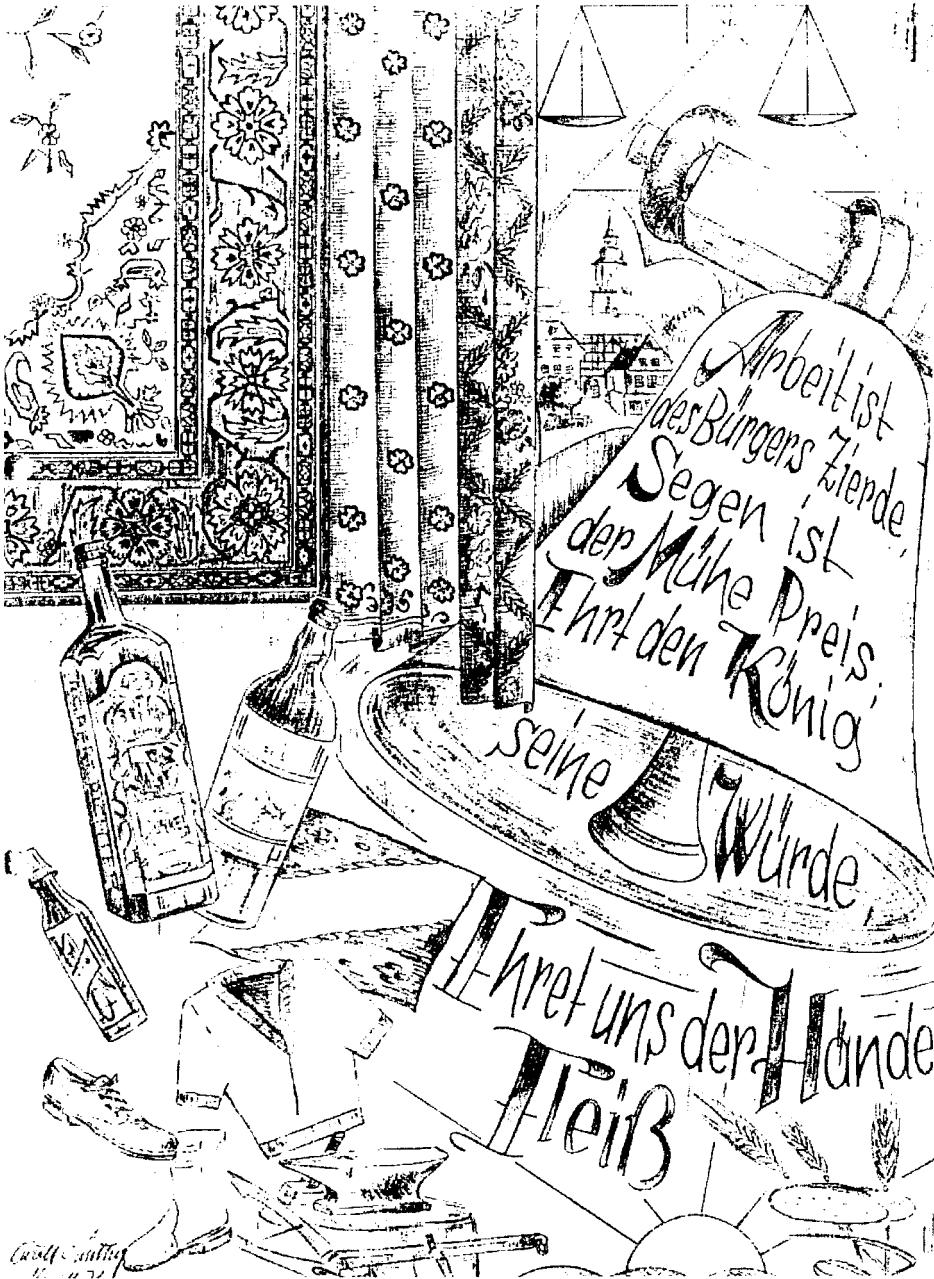 Arbeit ist
des Bürgers Zierde,
Segen ist
der Mühe Preis;
Ehrt den König
seine Würde
Ehret uns der Hände
Fleiß